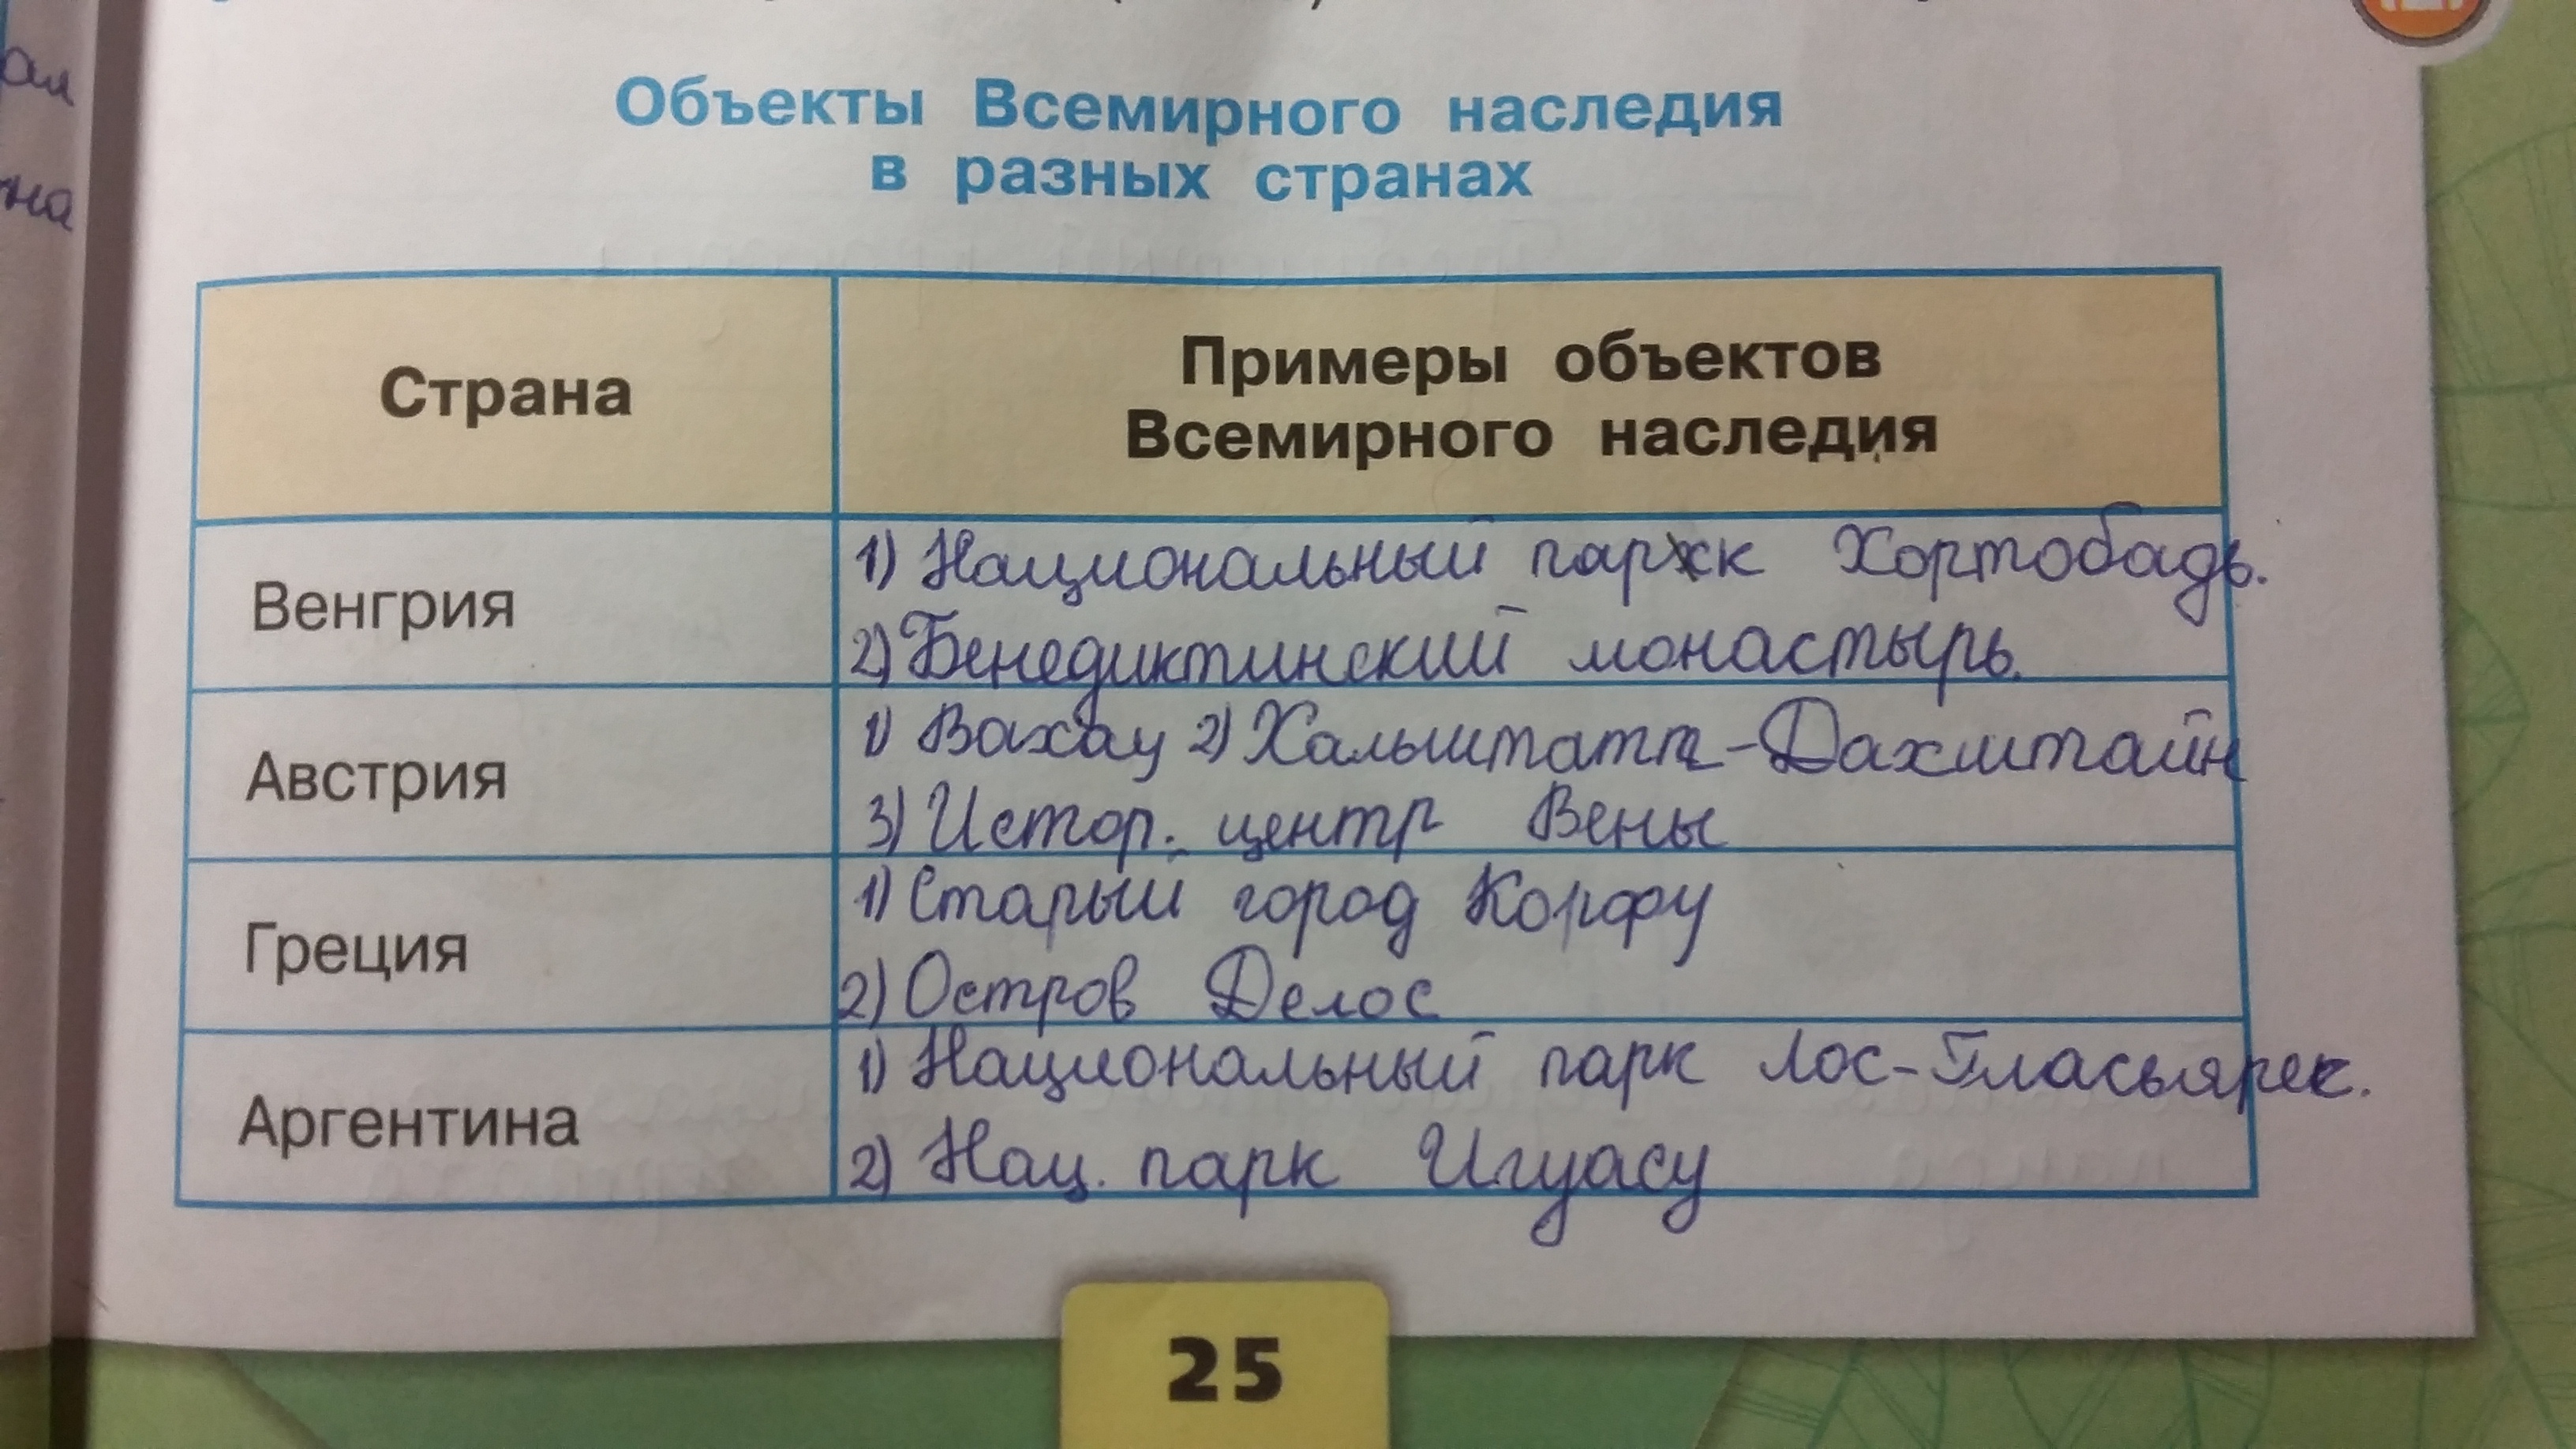 ал
на
Объекты Всемирного наследия
в разных странах
Страна
Примеры объектов
Всемирного наследия
Венгрия
1) Национальный парк Хортобадь.
2) Бенедиктинский монастырь.
Австрия
1) Вахау 2) Хальштатт-Дахштайн
3) Истор. центр Вены
Греция
1) Старый город Корфу
2) Остров Делос
Аргентина
1) Национальный парк Лос-Гласьярес.
2) Нац. парк Игуасу
25